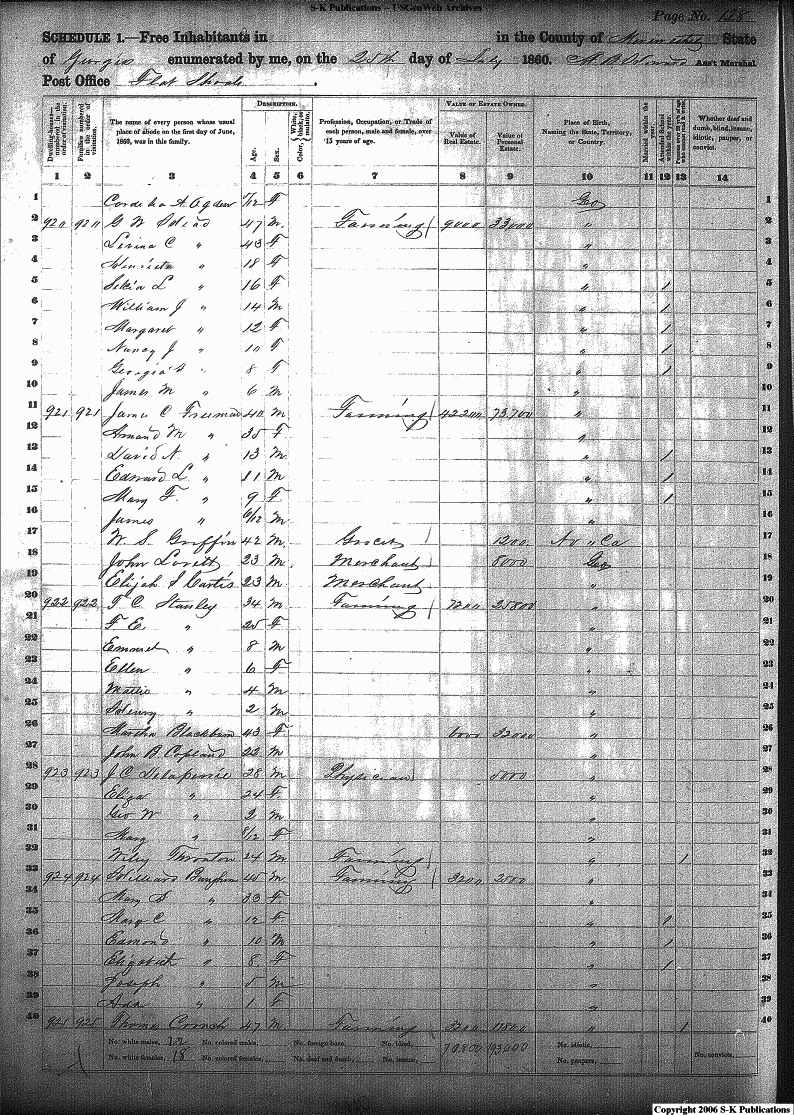 S-K Publications – USGenWeb Archives
Page No. 128
SCHEDULE 1.—Free Inhabitants in in the County of State
of Georgia enumerated by me, on the 25th day of July 1860. Ass't Marshal
Post Office Flat Shoals
Dwelling-houses—numbered in the order of visitation. Families numbered in the order of visitation. The name of every person whose usual place of abode on the first day of June, 1860, was in this family. DESCRIPTION. Age. Sex. Color, White, black, or mulatto. Profession, Occupation, or Trade of each person, male and female, over 15 years of age. VALUE OF ESTATE OWNED. Value of Real Estate. Value of Personal Estate. Place of Birth, Naming the State, Territory, or Country. Married within the year. Attended School within the year. Whether deaf and dumb, blind, insane, idiotic, pauper, or convict.
1 2 3 4 5 6 7 8 9 10 11 12 13 14
1 A. Ogden /12 F Geo 1
2 920 920 G W 47 M Farming 9000 33000 " 2
3 C " 43 F " 3
4 " 18 F " 4
5 L " 16 F " 1 5
6 William J " 14 M " 1 6
7 Margaret " 12 F " 1 7
8 Nancy J " 10 F " 1 8
9 Georgia " 8 F " 1 9
10 James M " 6 M " 10
11 921 921 James C Freeman 40 M Farming 42200 73,700 " 11
12 M " 35 F " 12
13 David A. " 13 M " 1 13
14 Edward L " 11 M " 1 14
15 Mary F. " 9 F " 1 15
16 James " 6/12 M " 16
17 W. S. Griffin 42 M Grocer 1200 17
18 John Lovett 23 M Merchant 8000 Geo 18
19 Elijah Curtis 23 M Merchant " 19
20 922 922 T C Stanley 34 M Farming 7200 25800 " 20
21 F E " 25 F " 21
22 Emmet " 8 M " 22
23 Ellen " 6 F " 23
24 Mattie " 4 M " 24
25 Henry " 2 M " 25
26 Martha Blackburn 43 F 32000 " 26
27 John B Copland 22 M " 27
28 923 923 J C 28 M Physician 5000 " 28
29 Eliza " 24 F " 29
30 Geo W " 2 M " 30
31 Mary " 8/12 F " 31
32 Wiley Thornton 24 M Farming " 1 32
33 924 924 William 45 M Farming 3200 2500 " 33
34 Mary S " 33 F " 34
35 Mary C " 12 F " 1 35
36 Edmond " 10 M " 1 36
37 Elizabeth " 8 F " 1 37
38 Joseph " 5 M " 38
39 Ada " 1 F " 39
40 925 925 Thomas 47 M Farming 3200 11800 " 1 40
No. white males, 22 No. colored males, No. foreign born, No. blind, 70.800 193000 No. idiotic,
No. white females, 18 No. colored females, No. deaf and dumb, No. insane, No. paupers, No. convicts,
Copyright 2006 S-K Publications